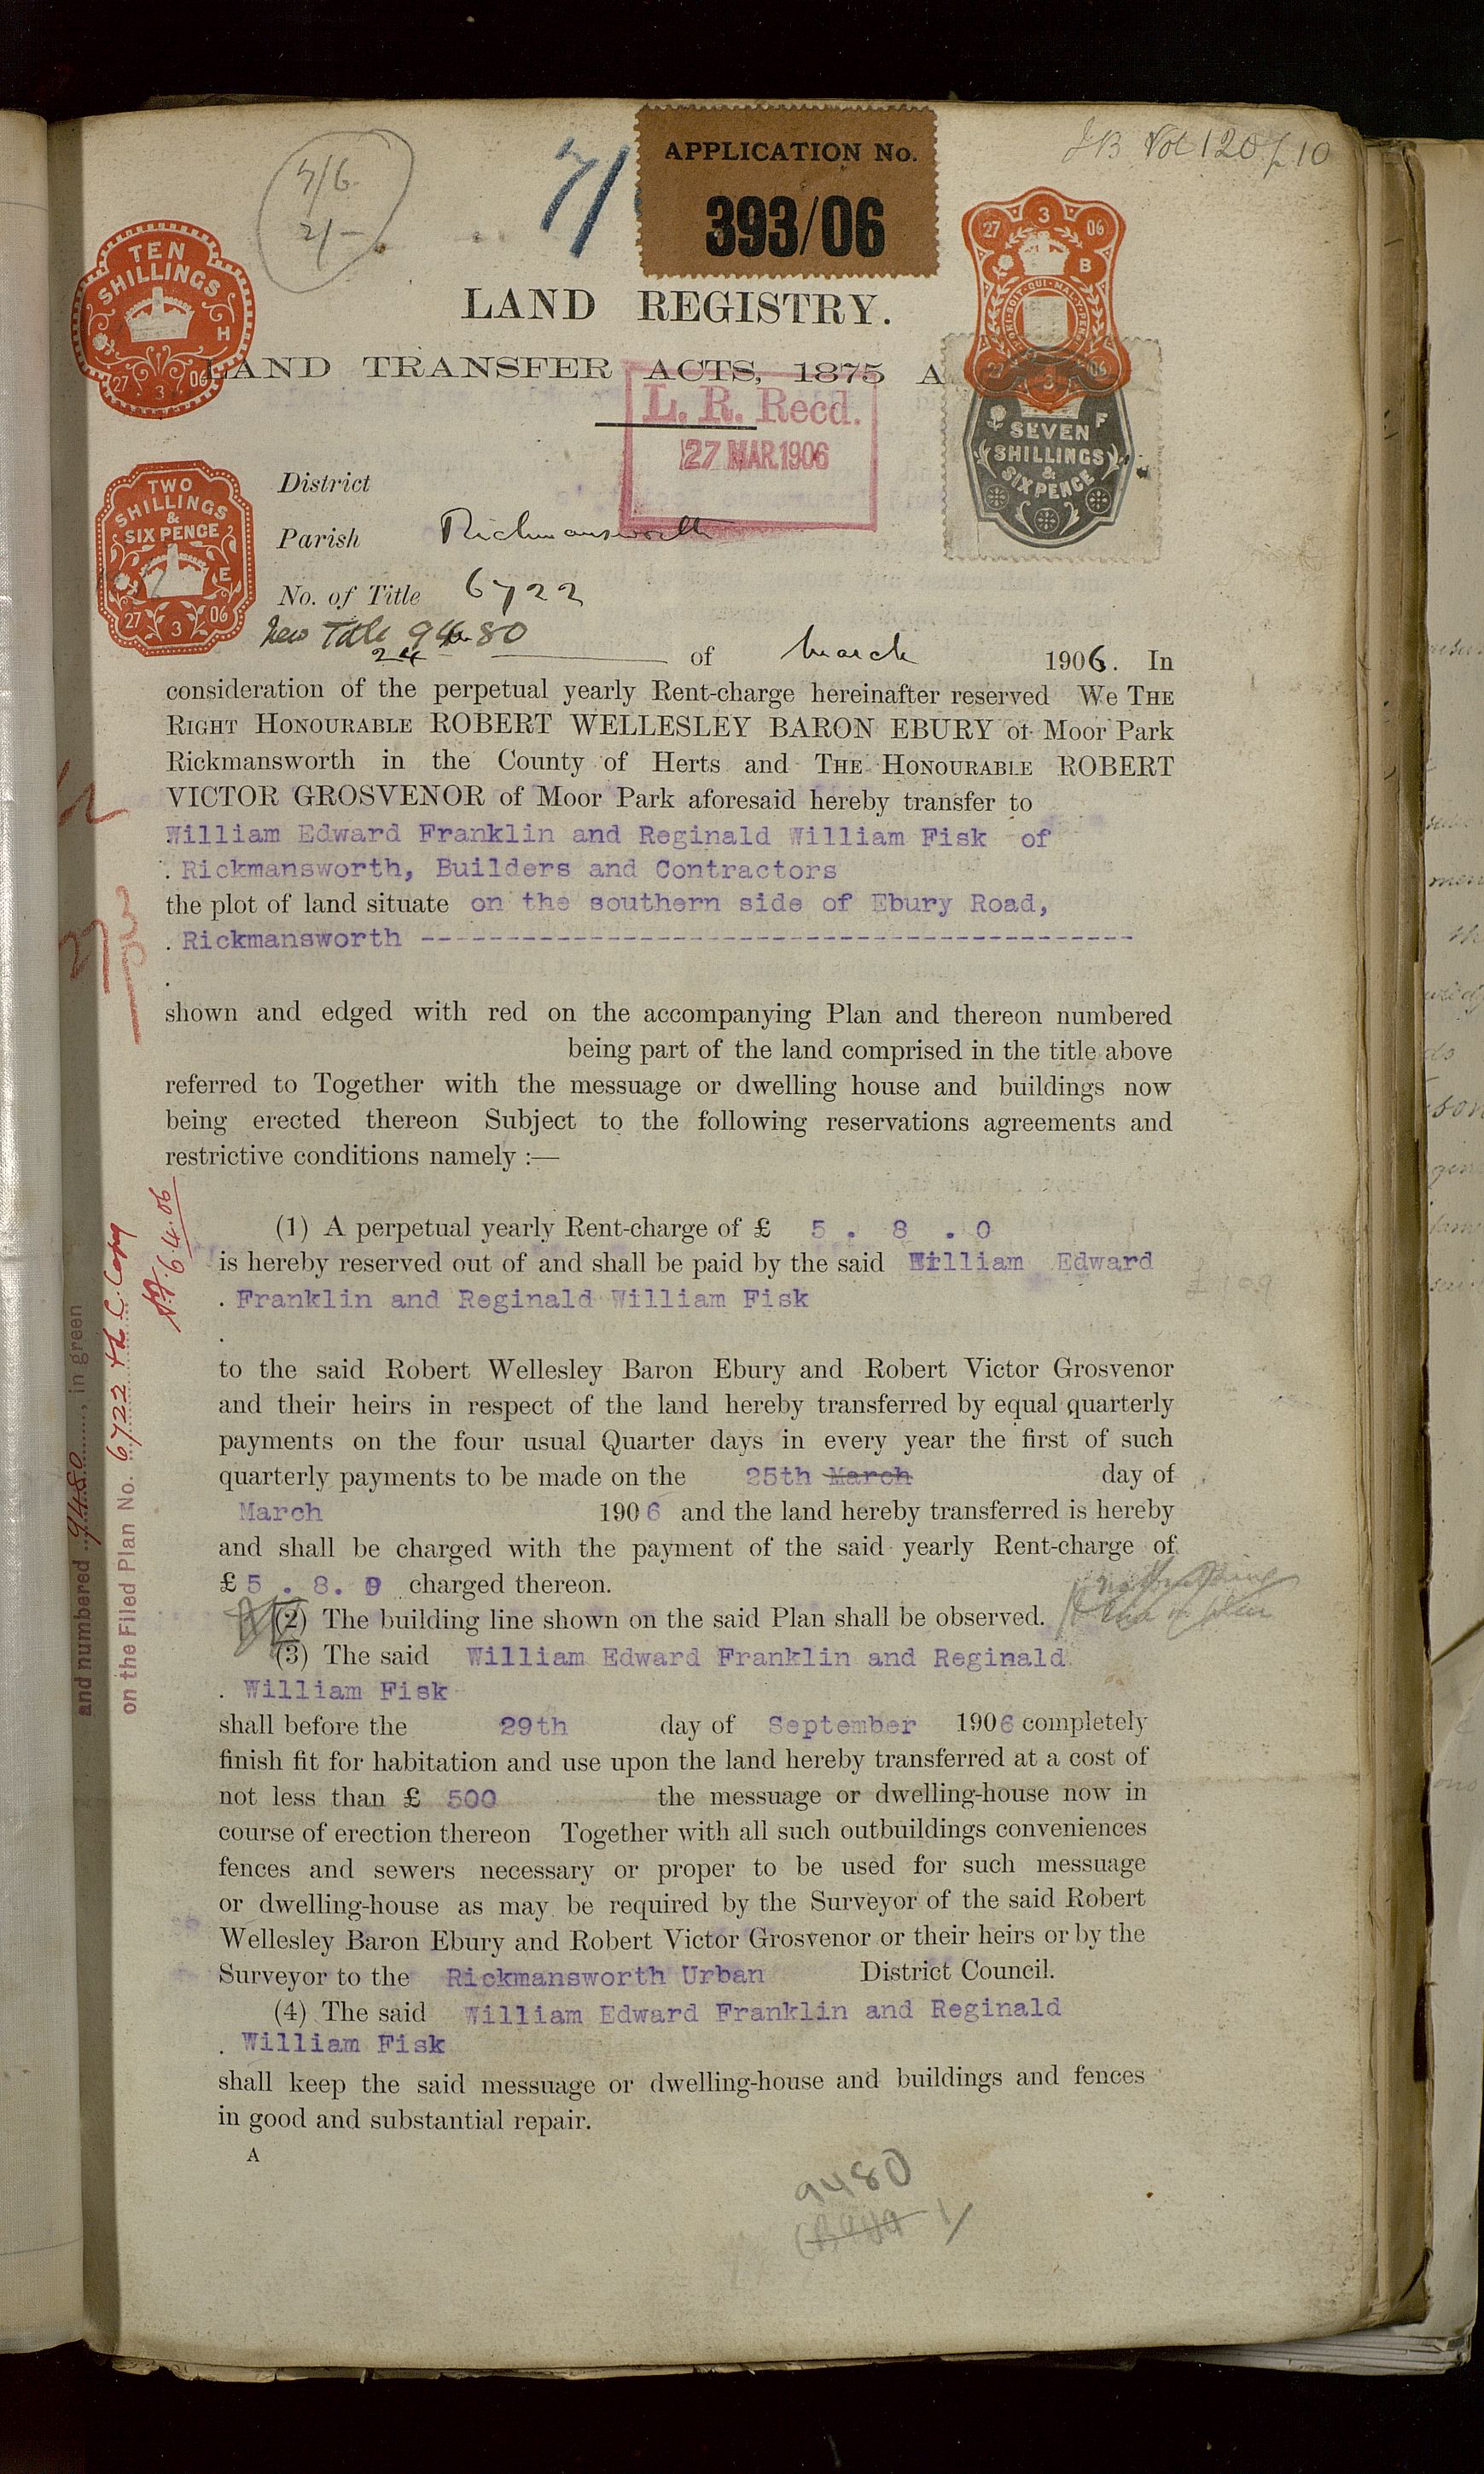 JB Vol 120 f 10
7/6
2/-
7/
APPLICATION No.
393/06
TEN
SHILLINGS
H
27 3 06
27 3 06
B
27 3 06
SEVEN F
SHILLINGS
&
SIX PENCE
LAND REGISTRY.
LAND TRANSFER ACTS, 1875 A
L. R. Recd.
27 MAR.1906
TWO
SHILLINGS
&
SIX PENCE
E
27 3 06
District
Parish Rickmansworth
No. of Title 6722
New Title 9480
24 of March 1906. In
consideration of the perpetual yearly Rent-charge hereinafter reserved We THE
RIGHT HONOURABLE ROBERT WELLESLEY BARON EBURY of Moor Park
Rickmansworth in the County of Herts and THE HONOURABLE ROBERT
VICTOR GROSVENOR of Moor Park aforesaid hereby transfer to
William Edward Franklin and Reginald William Fisk of
Rickmansworth, Builders and Contractors
the plot of land situate on the southern side of Ebury Road,
Rickmansworth ------------------------------------------
shown and edged with red on the accompanying Plan and thereon numbered
being part of the land comprised in the title above
referred to Together with the messuage or dwelling house and buildings now
being erected thereon Subject to the following reservations agreements and
restrictive conditions namely :—
(1) A perpetual yearly Rent-charge of £ 5 . 8 . 0
is hereby reserved out of and shall be paid by the said William Edward
Franklin and Reginald William Fisk
to the said Robert Wellesley Baron Ebury and Robert Victor Grosvenor
and their heirs in respect of the land hereby transferred by equal quarterly
payments on the four usual Quarter days in every year the first of such
quarterly payments to be made on the 25th March day of
March 1906 and the land hereby transferred is hereby
and shall be charged with the payment of the said yearly Rent-charge of
£ 5 . 8. 0 charged thereon.
(2) The building line shown on the said Plan shall be observed.
(3) The said William Edward Franklin and Reginald
William Fisk
shall before the 29th day of September 1906 completely
finish fit for habitation and use upon the land hereby transferred at a cost of
not less than £ 500 the messuage or dwelling-house now in
course of erection thereon Together with all such outbuildings conveniences
fences and sewers necessary or proper to be used for such messuage
or dwelling-house as may be required by the Surveyor of the said Robert
Wellesley Baron Ebury and Robert Victor Grosvenor or their heirs or by the
Surveyor to the Rickmansworth Urban District Council.
(4) The said William Edward Franklin and Reginald
William Fisk
shall keep the said messuage or dwelling-house and buildings and fences
in good and substantial repair.
A
9480
and numbered 9480, in green
on the Filed Plan No. 6722
6.4.06